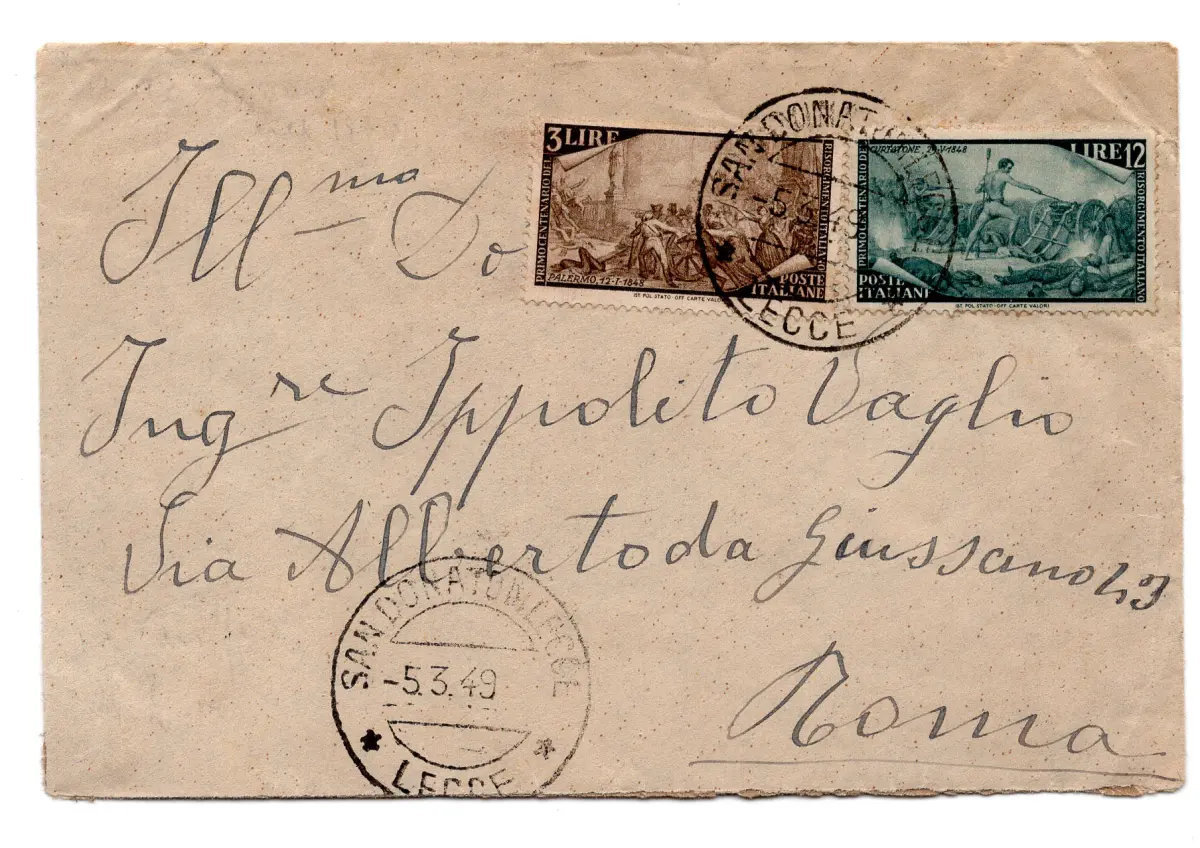 3 LIRE
PRIMO CENTENARIO DEL
RISORGIMENTO ITALIANO
PALERMO, 12-I-1848
POSTE
ITALIANE
IST. POL. STATO - OFF. CARTE VALORI
LIRE 12
CURTATONE, 29-V-1848
PRIMO CENTENARIO DEL
RISORGIMENTO ITALIANO
POSTE
ITALIANE
IST. POL. STATO - OFF. CARTE VALORI
SAN DONATO DI LECCE
-5.3.49
LECCE
Ill.mo Do
Ing.re Ippolito Vaglio
Via Alberto da Giussano
Roma
SAN DONATO DI LECCE
-5.3.49
LECCE